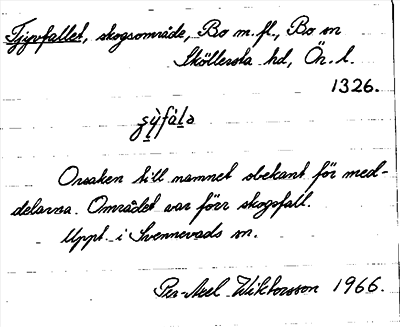 Tjyvfallet, skogsområde, Bo m.fl., Bo sn
Sköllersta hd, Ör. l.
1326.
Orsaken till namnet obekant för med-
delarna. Området var förr skogsfall.
Uppt. i Svennevads sn.
Per-Axel Wiktorsson 1966.